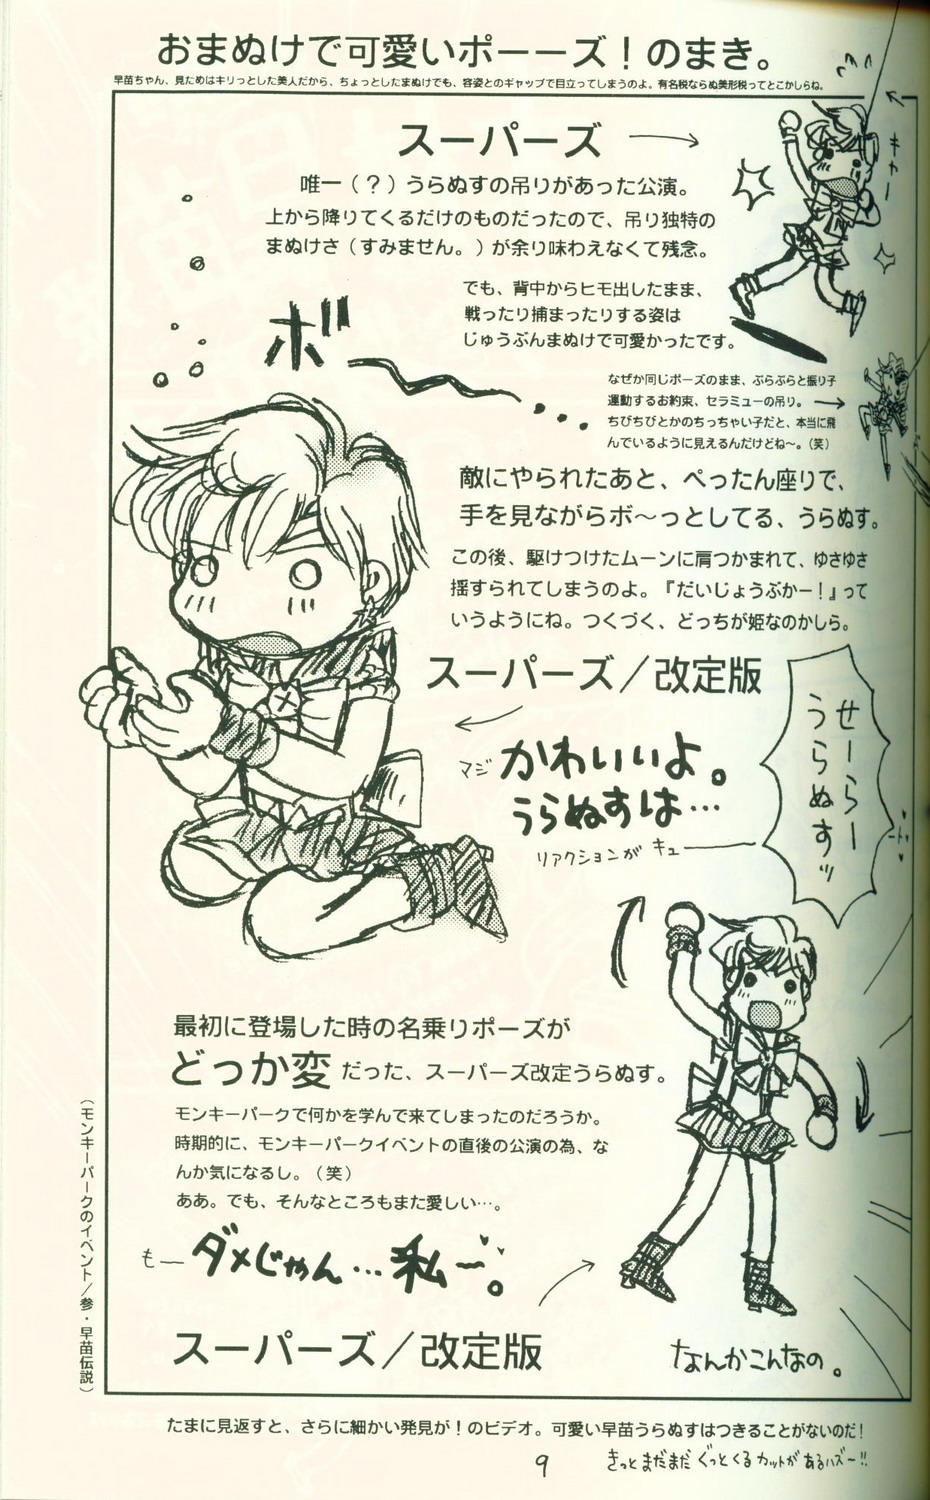 おまぬけで可愛いポーーズ！のまき。
早苗ちゃん、見ためはキリっとした美人だから、ちょっとしたまぬけでも、容姿とのギャップで目立ってしまうのよ。有名税ならぬ美形税ってとこかしらね。
スーパーズ
唯一（？）うらぬすの吊りがあった公演。
上から降りてくるだけのものだったので、吊り独特の
まぬけさ（すみません。）が余り味わえなくて残念。
でも、背中からヒモ出したまま、
戦ったり捕まったりする姿は
じゅうぶんまぬけで可愛かったです。
キャー
なぜか同じポーズのまま、ぶらぶらと振り子
運動するお約束、セラミューの吊り。
ちびちびとかのちっちゃい子だと、本当に飛
んでいるように見えるんだけどね〜。（笑）
ボ
敵にやられたあと、ぺったん座りで、
手を見ながらボ〜っとしてる、うらぬす。
この後、駆けつけたムーンに肩つかまれて、ゆさゆさ
揺すられてしまうのよ。『だいじょうぶかー！』って
いうようにね。つくづく、どっちが姫なのかしら。
スーパーズ／改定版
マジ かわいいよ。
うらぬすは…
リアクションが キュー
せーらー
うらぬすッ
最初に登場した時の名乗りポーズが
どっか変だった、スーパーズ改定うらぬす。
モンキーパークで何かを学んで来てしまったのだろうか。
時期的に、モンキーパークイベントの直後の公演の為、な
んか気になるし。（笑）
ああ。でも、そんなところもまた愛しい…。
もー ダメじゃん…私ー。
スーパーズ／改定版
なんかこんなの。
（モンキーパークのイベント／参・早苗伝説）
たまに見返すと、さらに細かい発見が！のビデオ。可愛い早苗うらぬすはつきることがないのだ！
きっと まだまだ ぐっとくる カットが あるハズ〜!!
9